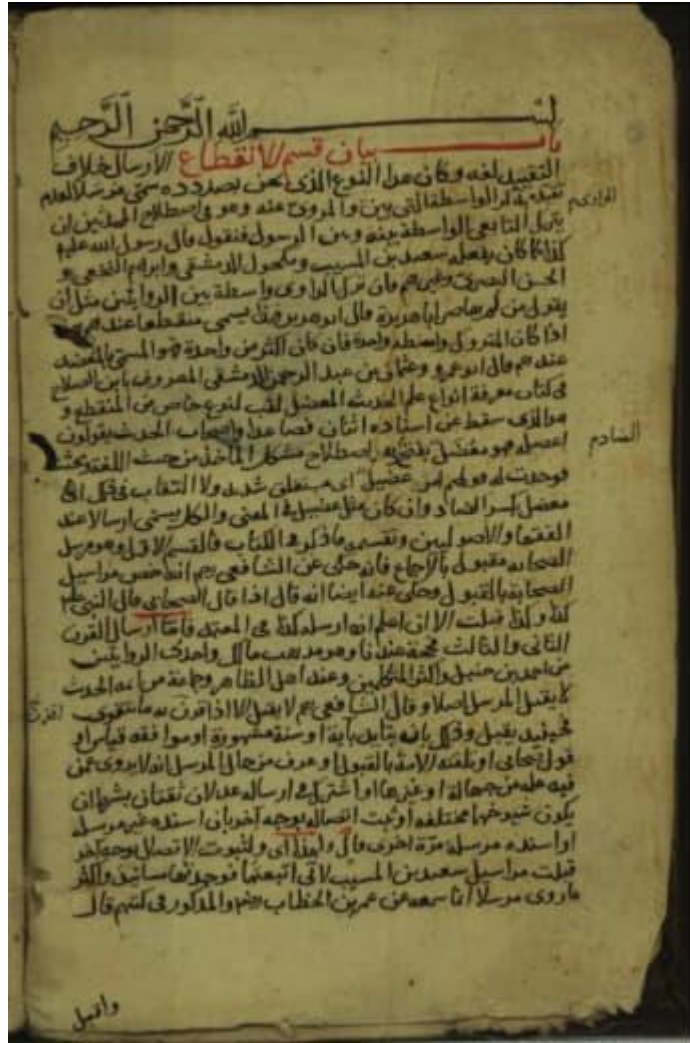 بسم الله الرحمن الرحيم
باب بيان قسم الانقطاع الارسال خلاف
التقييد لغة وكان هذا النوع الذي نحن بصدده سمي مرسلا لعدم
تقييده بذكر الواسطة التي بين والمروي عنه وهو في اصطلاح المحدثين ان
الراوي
يترك التابعي الواسطة بينه وبين الرسول فيقول قال رسول الله عليه
كذا كما كان يفعله سعيد بن المسيب ومكحول الدمشقي وابراهيم النخعي و
الحسن البصري وغيرهم فان ترك الراوي واسطة بين الروايتين مثل ان
يقول من لم يعاصر ابا هريرة قال ابو هريرة يسمى منقطعا عندهم
اذا كان المتروك واسطة واحدة فان كان اكثر من واحدة فهو المسمى بالمعضل
عندهم قال ابو عمرو وعثمان بن عبد الرحمن الدمشقي المعروف بابن الصلاح
في كتاب معرفة انواع علم الحديث المعضل لقب لنوع خاص من المنقطع و
هو الذي سقط عن اسناده اثنان فصاعدا واصحاب الحديث يقولون
اعضله فهو معضل بفتح اصطلاح مشكل المأخذ من حيث اللغة بحثت
الضاد م
فوجدت له قولهم امر عضيل اي مستغلق شديد ولا التفات في ذلك الى
معضل بكسر الضاد وان كان مثل عضيل في المعنى والكل يسمى ارسالا عند
الفقهاء والاصوليين وتقسيمه ما ذكر في الكتاب فالقسم الاول وهو مرسل
الصحابة مقبول بالاجماع فانه حكي عن الشافعي انه خص مراسيل
الصحابة بالقبول وحكي عنه ايضا انه قال اذا قال الصحابي قال النبي
كذا وكذا قبلت الا ان اعلم انه ارسله كذا في المعتمد فاما ارسال القرن
الثاني والثالث فحجة عندنا وهو مذهب مالك واحدى الروايتين
عن احمد بن حنبل واكثر المتكلمين وعند اهل الظاهر وجماعة من ائمة الحديث
لا يقبل المرسل اصلا وقال الشافعي لا يقبل الا اذا اقترن به ما يتقوى
فحينئذ يقبل وذلك بانه يتأيد بآية او سنة مشهورة او موافقة قياس او
قول صحابي او تلقته الامة بالقبول او عرف من حال المرسل انه لا يروي عمن
فيه علة من جهالة او غيرها او اشترك في ارساله عدلان ثقتان بشرط ان
يكون شيوخهما مختلفة او ثبت اتصاله بوجه آخر بان اسنده غير مرسله
او اسنده مرسله مرة اخرى قال ولهذا اي ولثبوت الاتصال بوجه آخر
قبلت مراسيل سعيد بن المسيب لاني اتبعتها فوجدتها مسانيد واكثر
ما روى مرسلا انما سمعه عن عمر بن الخطاب والمذكور في كتبهم قال